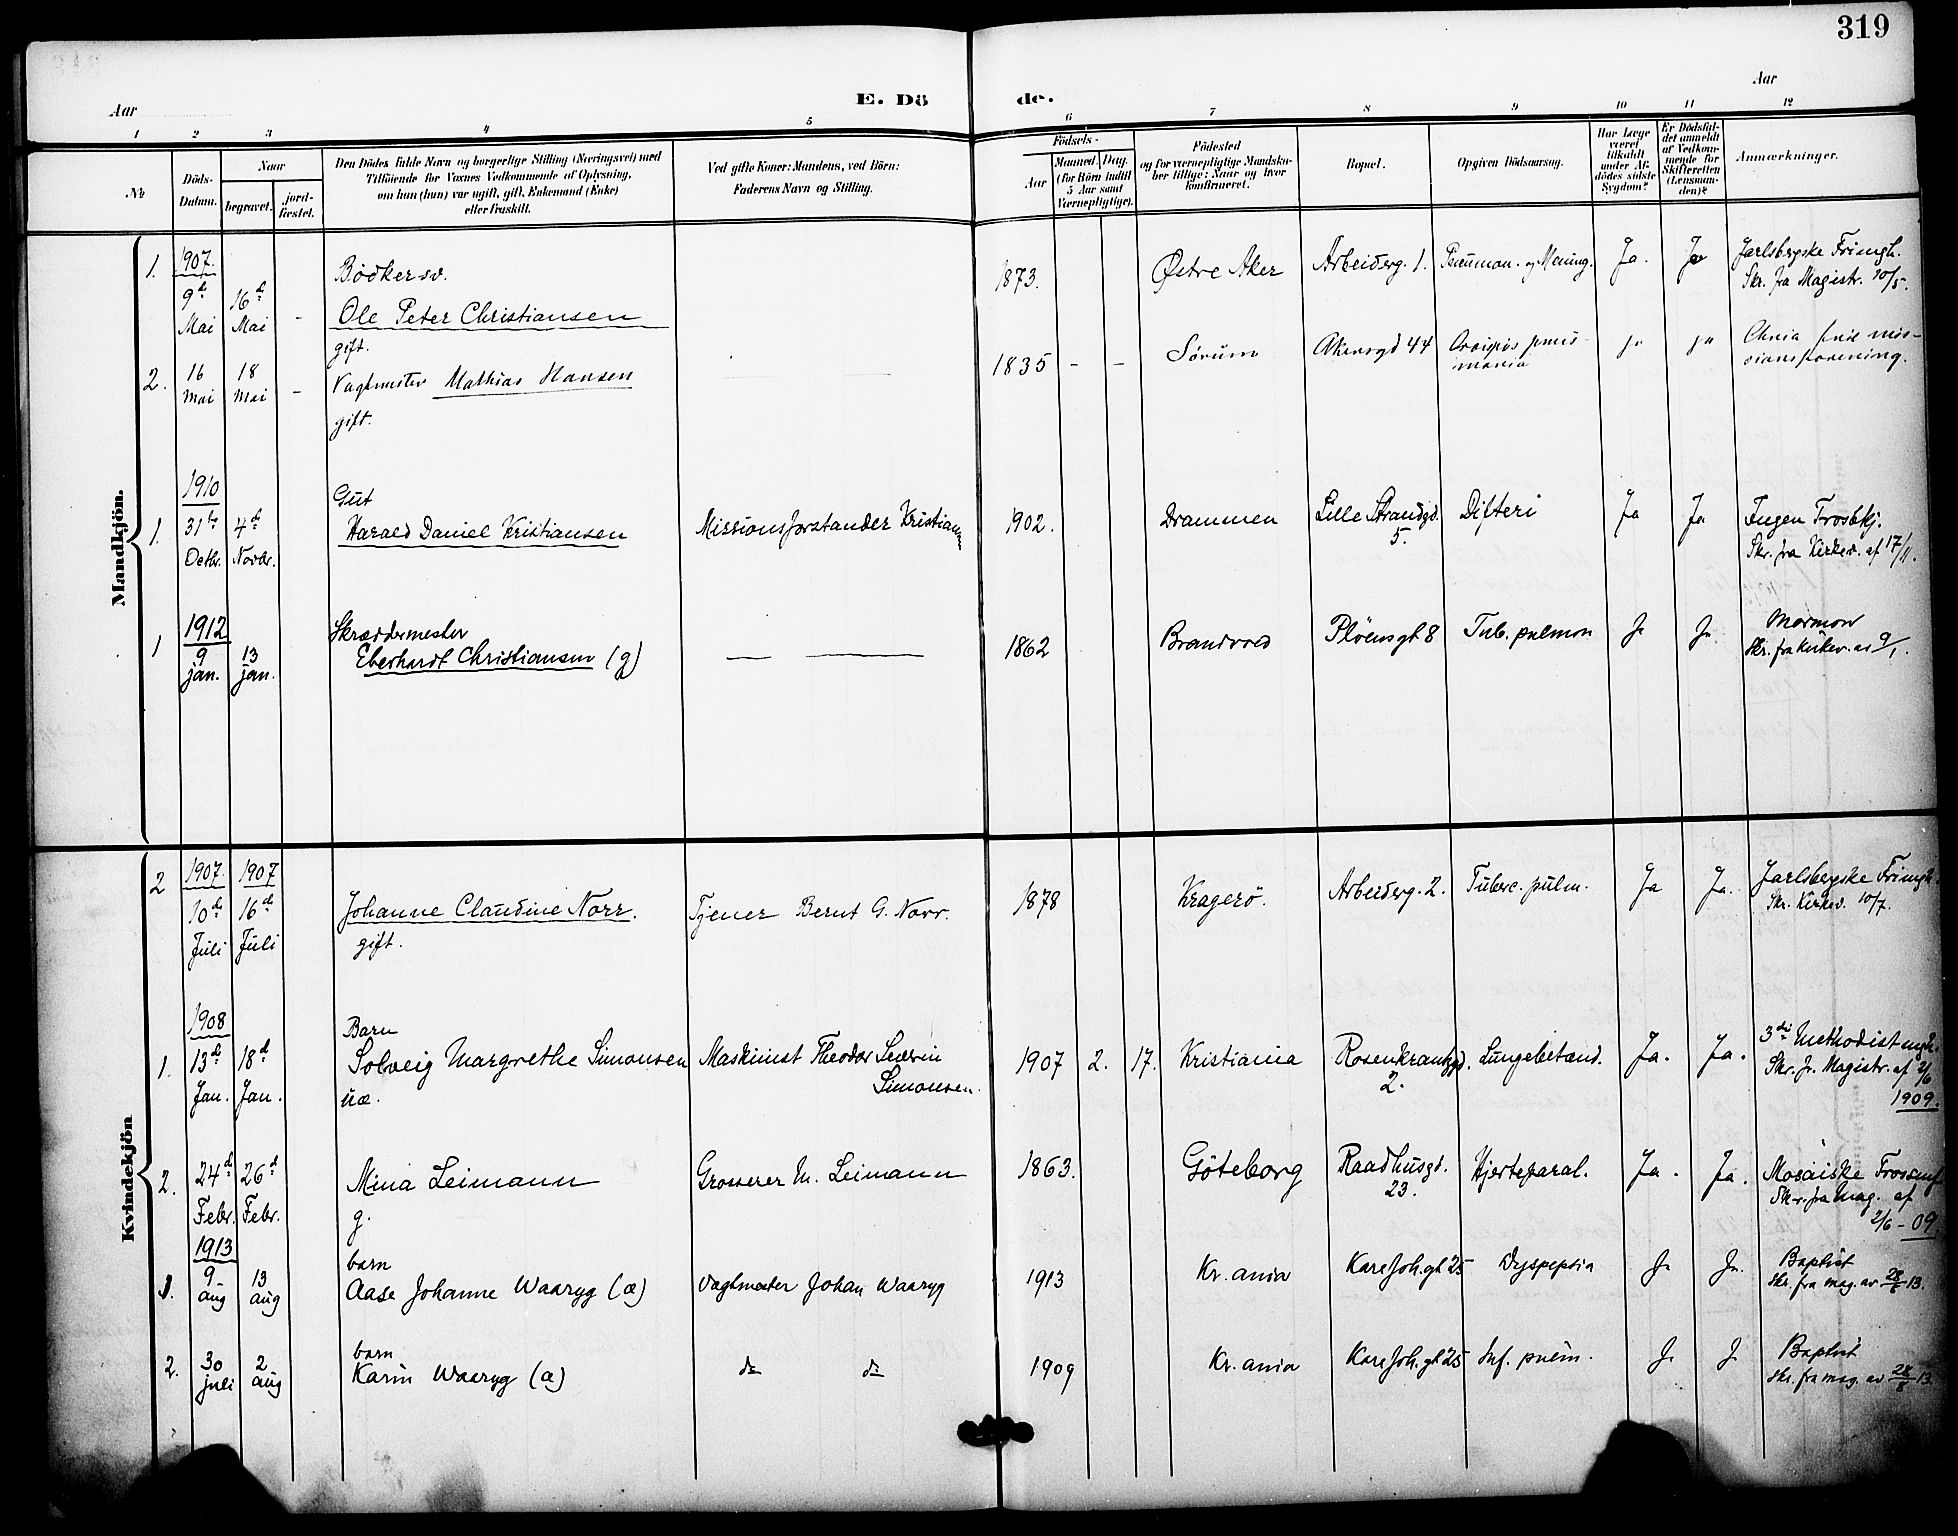 319
Aar
E. Dö
de.
Aar
1 2 3 4 5 6 7 8 9 10 11 12
№
Döds-Datum.
Naar
begravet.
jord-fæstet.
Den Dödes fulde Navn og borgerlige Stilling (Næringsvei) med
Tilföiende for Voxnes Vedkommende af Oplysning,
om han (hun) var ugift, gift, Enkemand (Enke)
eller fraskilt.
Ved gifte Koner: Mandens, ved Börn:
Faderens Navn og Stilling.
Födsels-
Aar
Maaned. Dag.
(for Börn indtil
5 Aar samt
Værnepligtige).
Födested
og for værnepligtige Mandska-
ber tillige: Naar og hvor
konfirmeret.
Bopæl.
Opgiven Dödsaarsag.
Har Læge
været
tilkaldt
under Af-
dödes sidste
Sygdom?
Er Dödsfal-
det anmeldt
af Vedkom-
mende for
Skifteretten
(Lensman-
den)?
Anmærkninger.
Mandkjön.
1. 1907. 9de Mai 16de Mai - Bödkersv.
Ole Peter Christiansen
gift.
1873. Østre Aker Arbeiderg. 1. Pneumon. og Mening. Ja. Ja Jarlsbergske Frimgh.
Skr. fra Magistr. 10/5.
2. 16 Mai 18 Mai - Vagtmester Mathias Hansen
gift.
1835 - - Sørum Akersgd 44 Ja Ja Chria
missionsforening.
1910
1. 31te Octbr. 4de Novbr. Gut
Harald Daniel Kristiansen Missionsforstander Kristiansen 1902. Drammen Lille Strandgd.
5. Difteri Ja Ja Ingen Trosbkj.
Skr. fra Kirkev. af 17/11.
1912
1 9 jan. 13 jan. Skræddermester
Eberhardt Christiansen (g) — — 1862 Brandvold Pløensgt 8 Tub. pulmon J. J. Mormon
Skr. fra kirkev. av 9/1.
Kvindekjön
2 1907. 10de Juli 1907 16de Juli Johanne Claudine Norr. Tjener Bernt G. Norr. 1878 Kragerö. Arbeiderg. 2. Tuberc. pulm. Ja Ja. Jarlsbergske Frimgh.
gift. Skr. Kirkev. 10/7.
1908
1. 13de Jan. 18de Jan. Barn
Solveig Margrethe Simonsen Maskinist Theodor Severin
Simonsen. 1907 2. 17. Kristiania Rosenkrantzgd.
2. Lungebetænd. Ja. Ja. 3die Methodistmgh.
uæ. Skr. fr. Magistr. af 2/6
1909.
2. 24de Febr. 26de Febr. Mina Leimann Grosserer M. Leimann 1863. Göteborg Raadhusgd.
23. Hjerteparal. Ja. Ja. Mosaiske Trossmf
g. Skr. fra Mag. af
2/6 - 09.
1913
1. 9 aug 13 aug barn
Aase Johanne Waaryg (æ) Vagtmester Johan Waaryg 1913 Kr.ania Karl Joh.gt 25 Dyspepsia J. J. Baptist
skr. fra mag. av 28/8 13.
2. 30 juli 2 aug barn
Karin Waaryg (æ) do do 1909 Kr.ania Karl Joh.gt 25 Inf. pulm. J. J. Baptist
skr. fra mag. av 28/8 13.